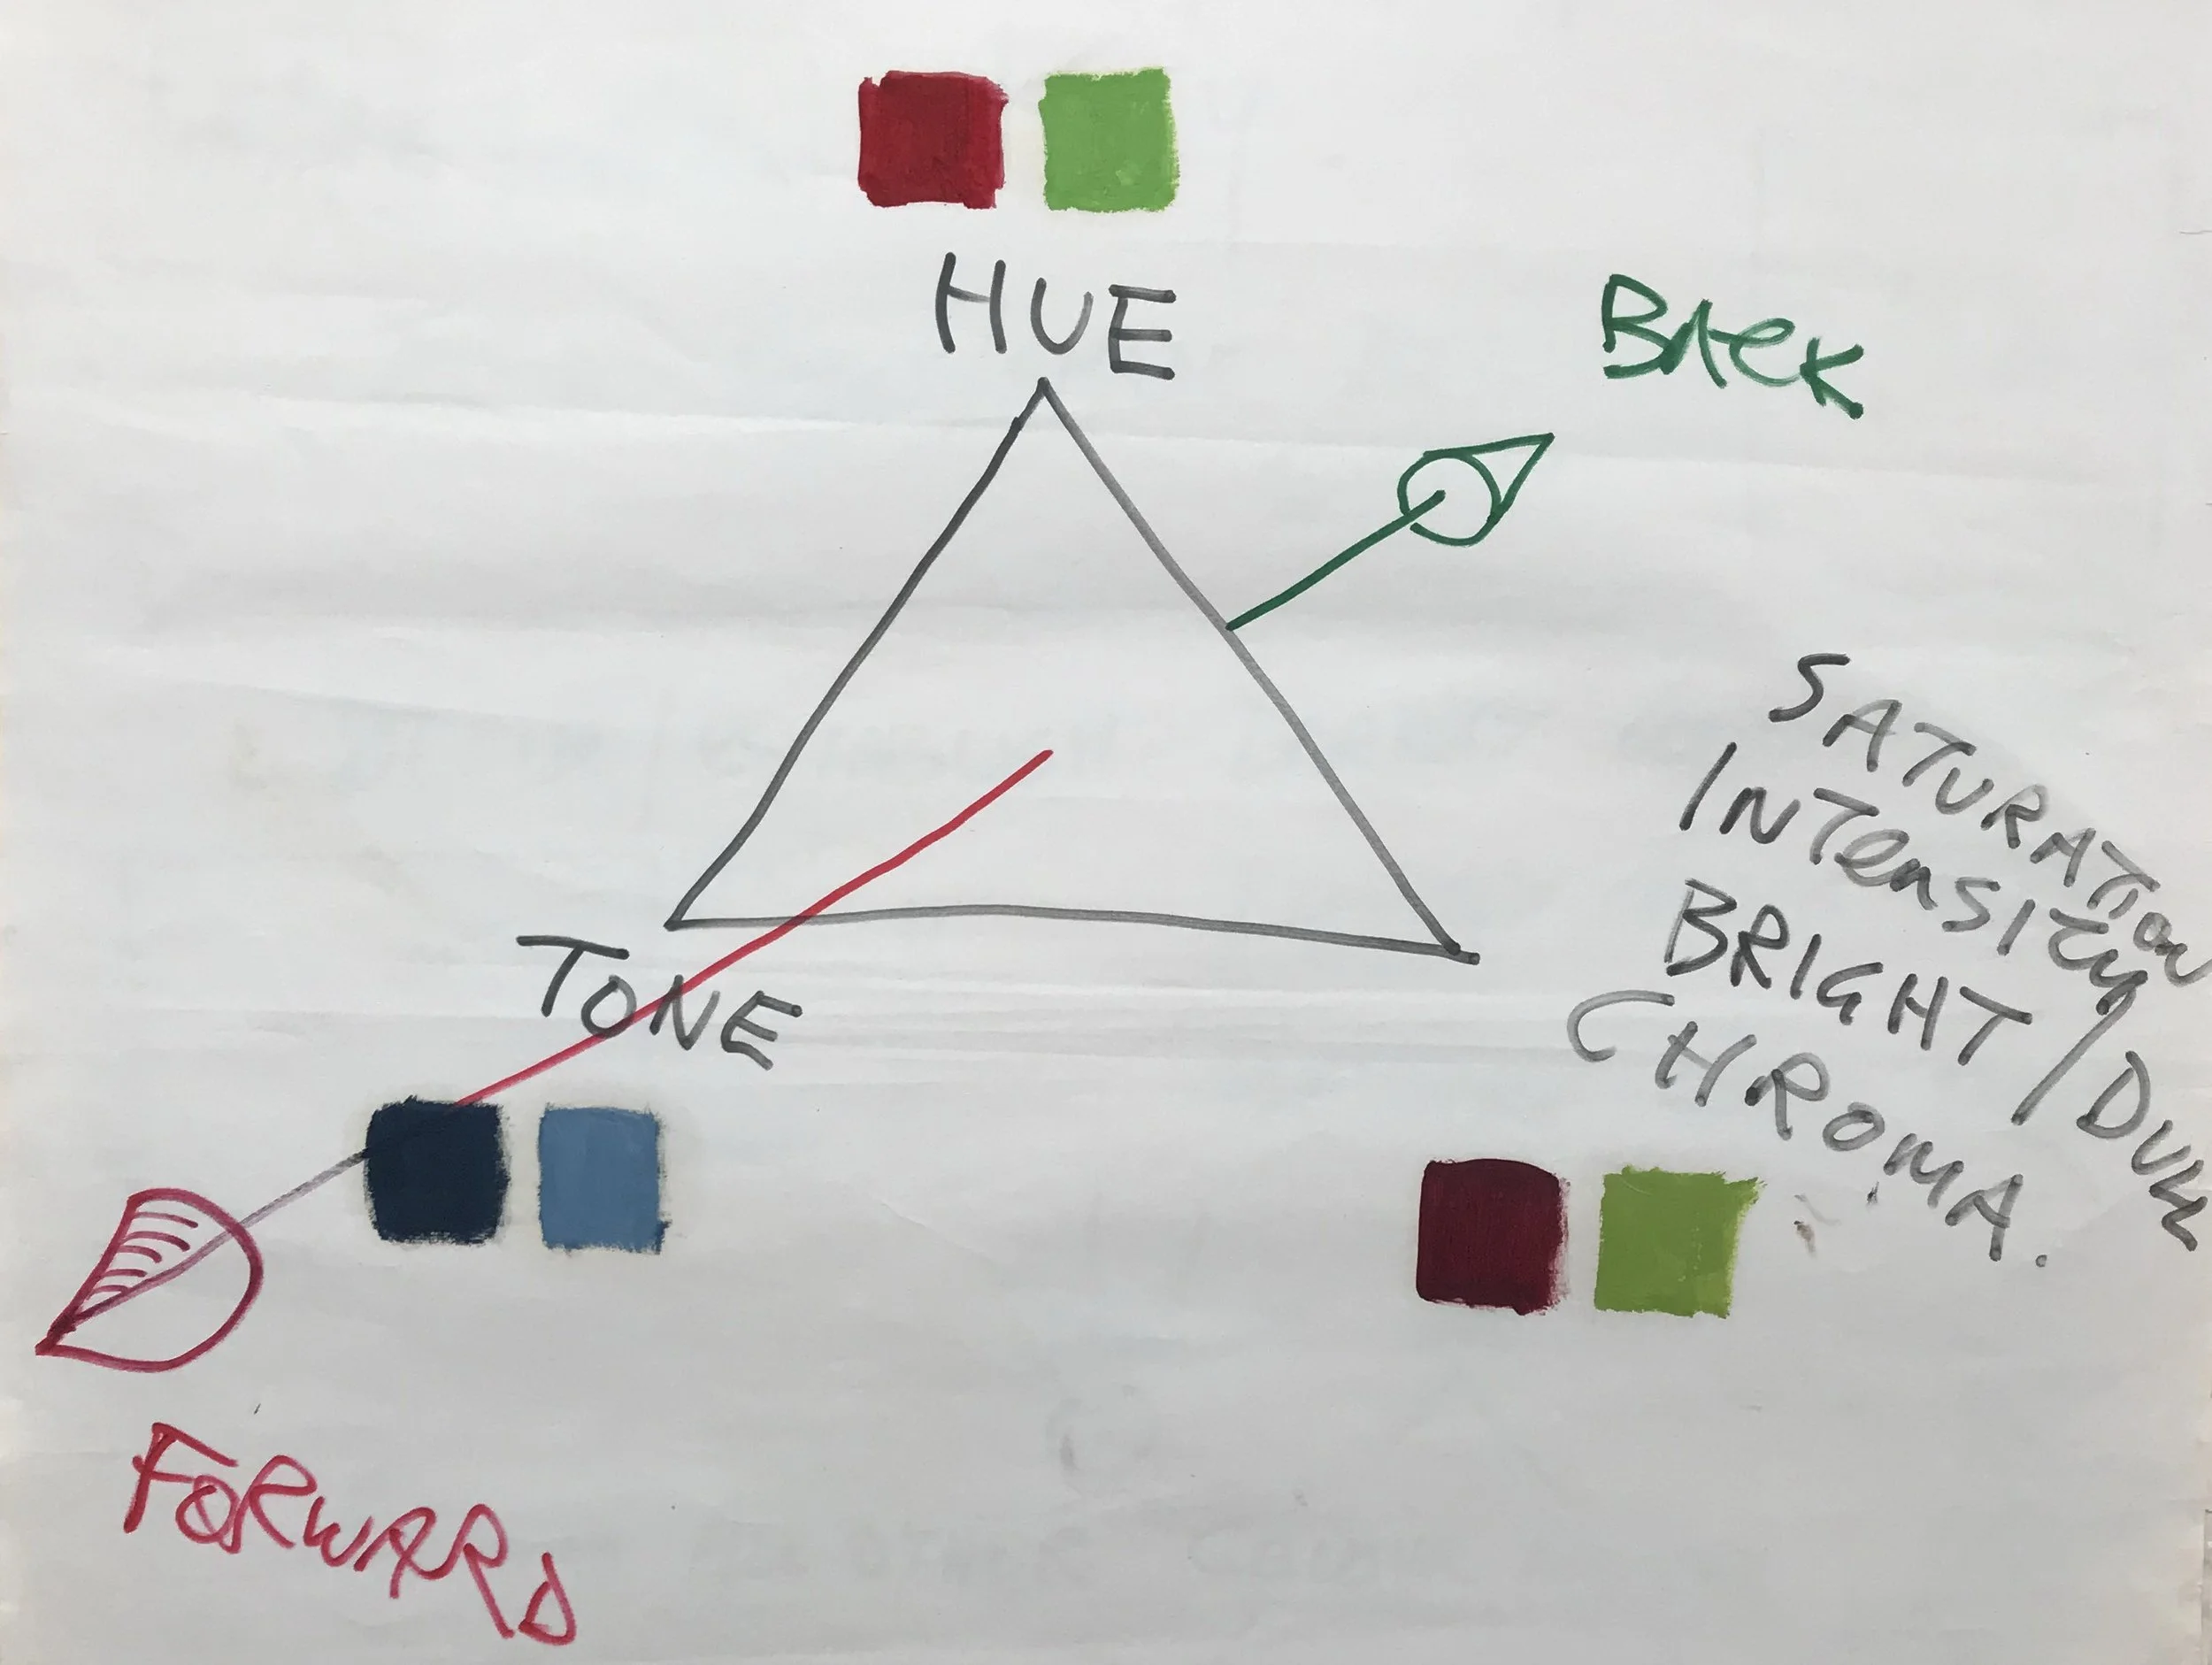 HUE
BACK
SATURATION
INTENSITY
BRIGHT / DULL
CHROMA.
TONE
FORWARD